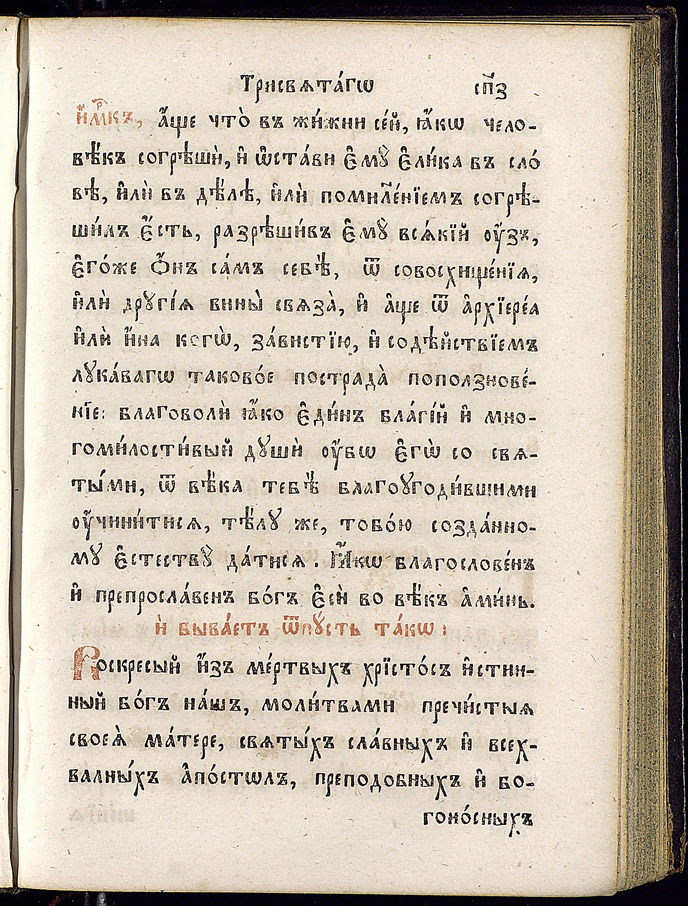 Трисвѧта́гѡ сп҃з
и҆мⷬ҇къ, а҆́ще что̀ въ жи́жни се́й, ꙗ҆́кѡ чело-
вѣ́къ согрѣшѝ, и҆ ѡ҆ста́ви є҆мꙋ̀ є҆ли́ка въ сло́
вѣ, и҆лѝ въ дѣ́лѣ, и҆лѝ помышле́нїемъ согрѣ-
ши́лъ є҆́сть, разрѣши́въ є҆мꙋ̀ всѧ́кїй оу҆́зъ,
є҆го́же ѻ҆́нъ са́мъ себѣ̀, ѿ совосхище́нїѧ,
и҆лѝ дрꙋгі́ѧ вины̀ свѧза̀, и҆ а҆́ще ѿ а҆рхїере́ѧ
и҆лѝ и҆́на когѡ̀, за́вистїю, и҆ содѣ́йствїемъ
лꙋка́вагѡ таково́е пострада̀ поползнове́-
нїе: благоволѝ ꙗ҆́ко є҆ди́нъ благі́й и҆ мно-
гоми́лостивый дꙋшѝ оу҆́бѡ є҆гѡ̀ со свѧ-
ты́ми, ѿ вѣ́ка тебѣ̀ благоꙋгоди́вшими
оу҆чини́тисѧ, тѣ́лꙋ же, тобо́ю созда́нно-
мꙋ є҆стествꙋ̀ да́тисѧ. Ꙗ҆́кѡ благослове́нъ
и҆ препросла́венъ бо́гъ є҆сѝ во вѣ́къ а҆ми́нь.
и҆ быва́етъ ѿпꙋ́сть та́кѡ:
Воскресый и҆́зъ ме́ртвыхъ хрїсто́съ и҆́стин-
ный бо́гъ на́шъ, моли́твами пречи́стыѧ
своеѧ̀ ма́тере, свѧты́хъ сла́вныхъ и҆ всех-
ва́лныхъ а҆по́стѡлъ, преподо́бныхъ и҆ бо-
гоно́сныхъ